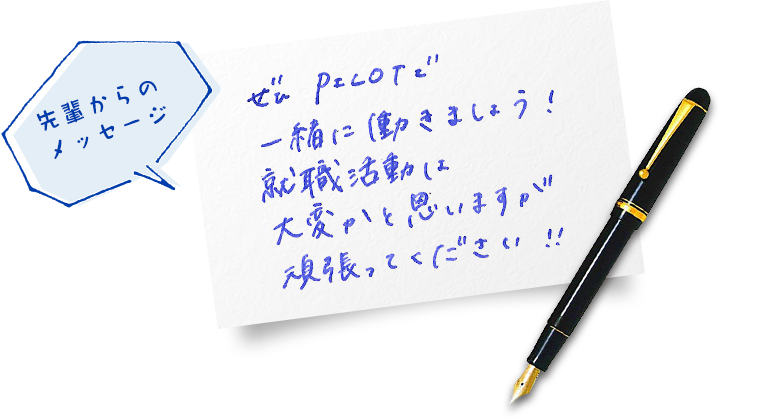 先輩からの
メッセージ
ぜひ PILOTで
一緒に働きましょう!
就職活動は
大変かと思いますが
頑張ってください!!